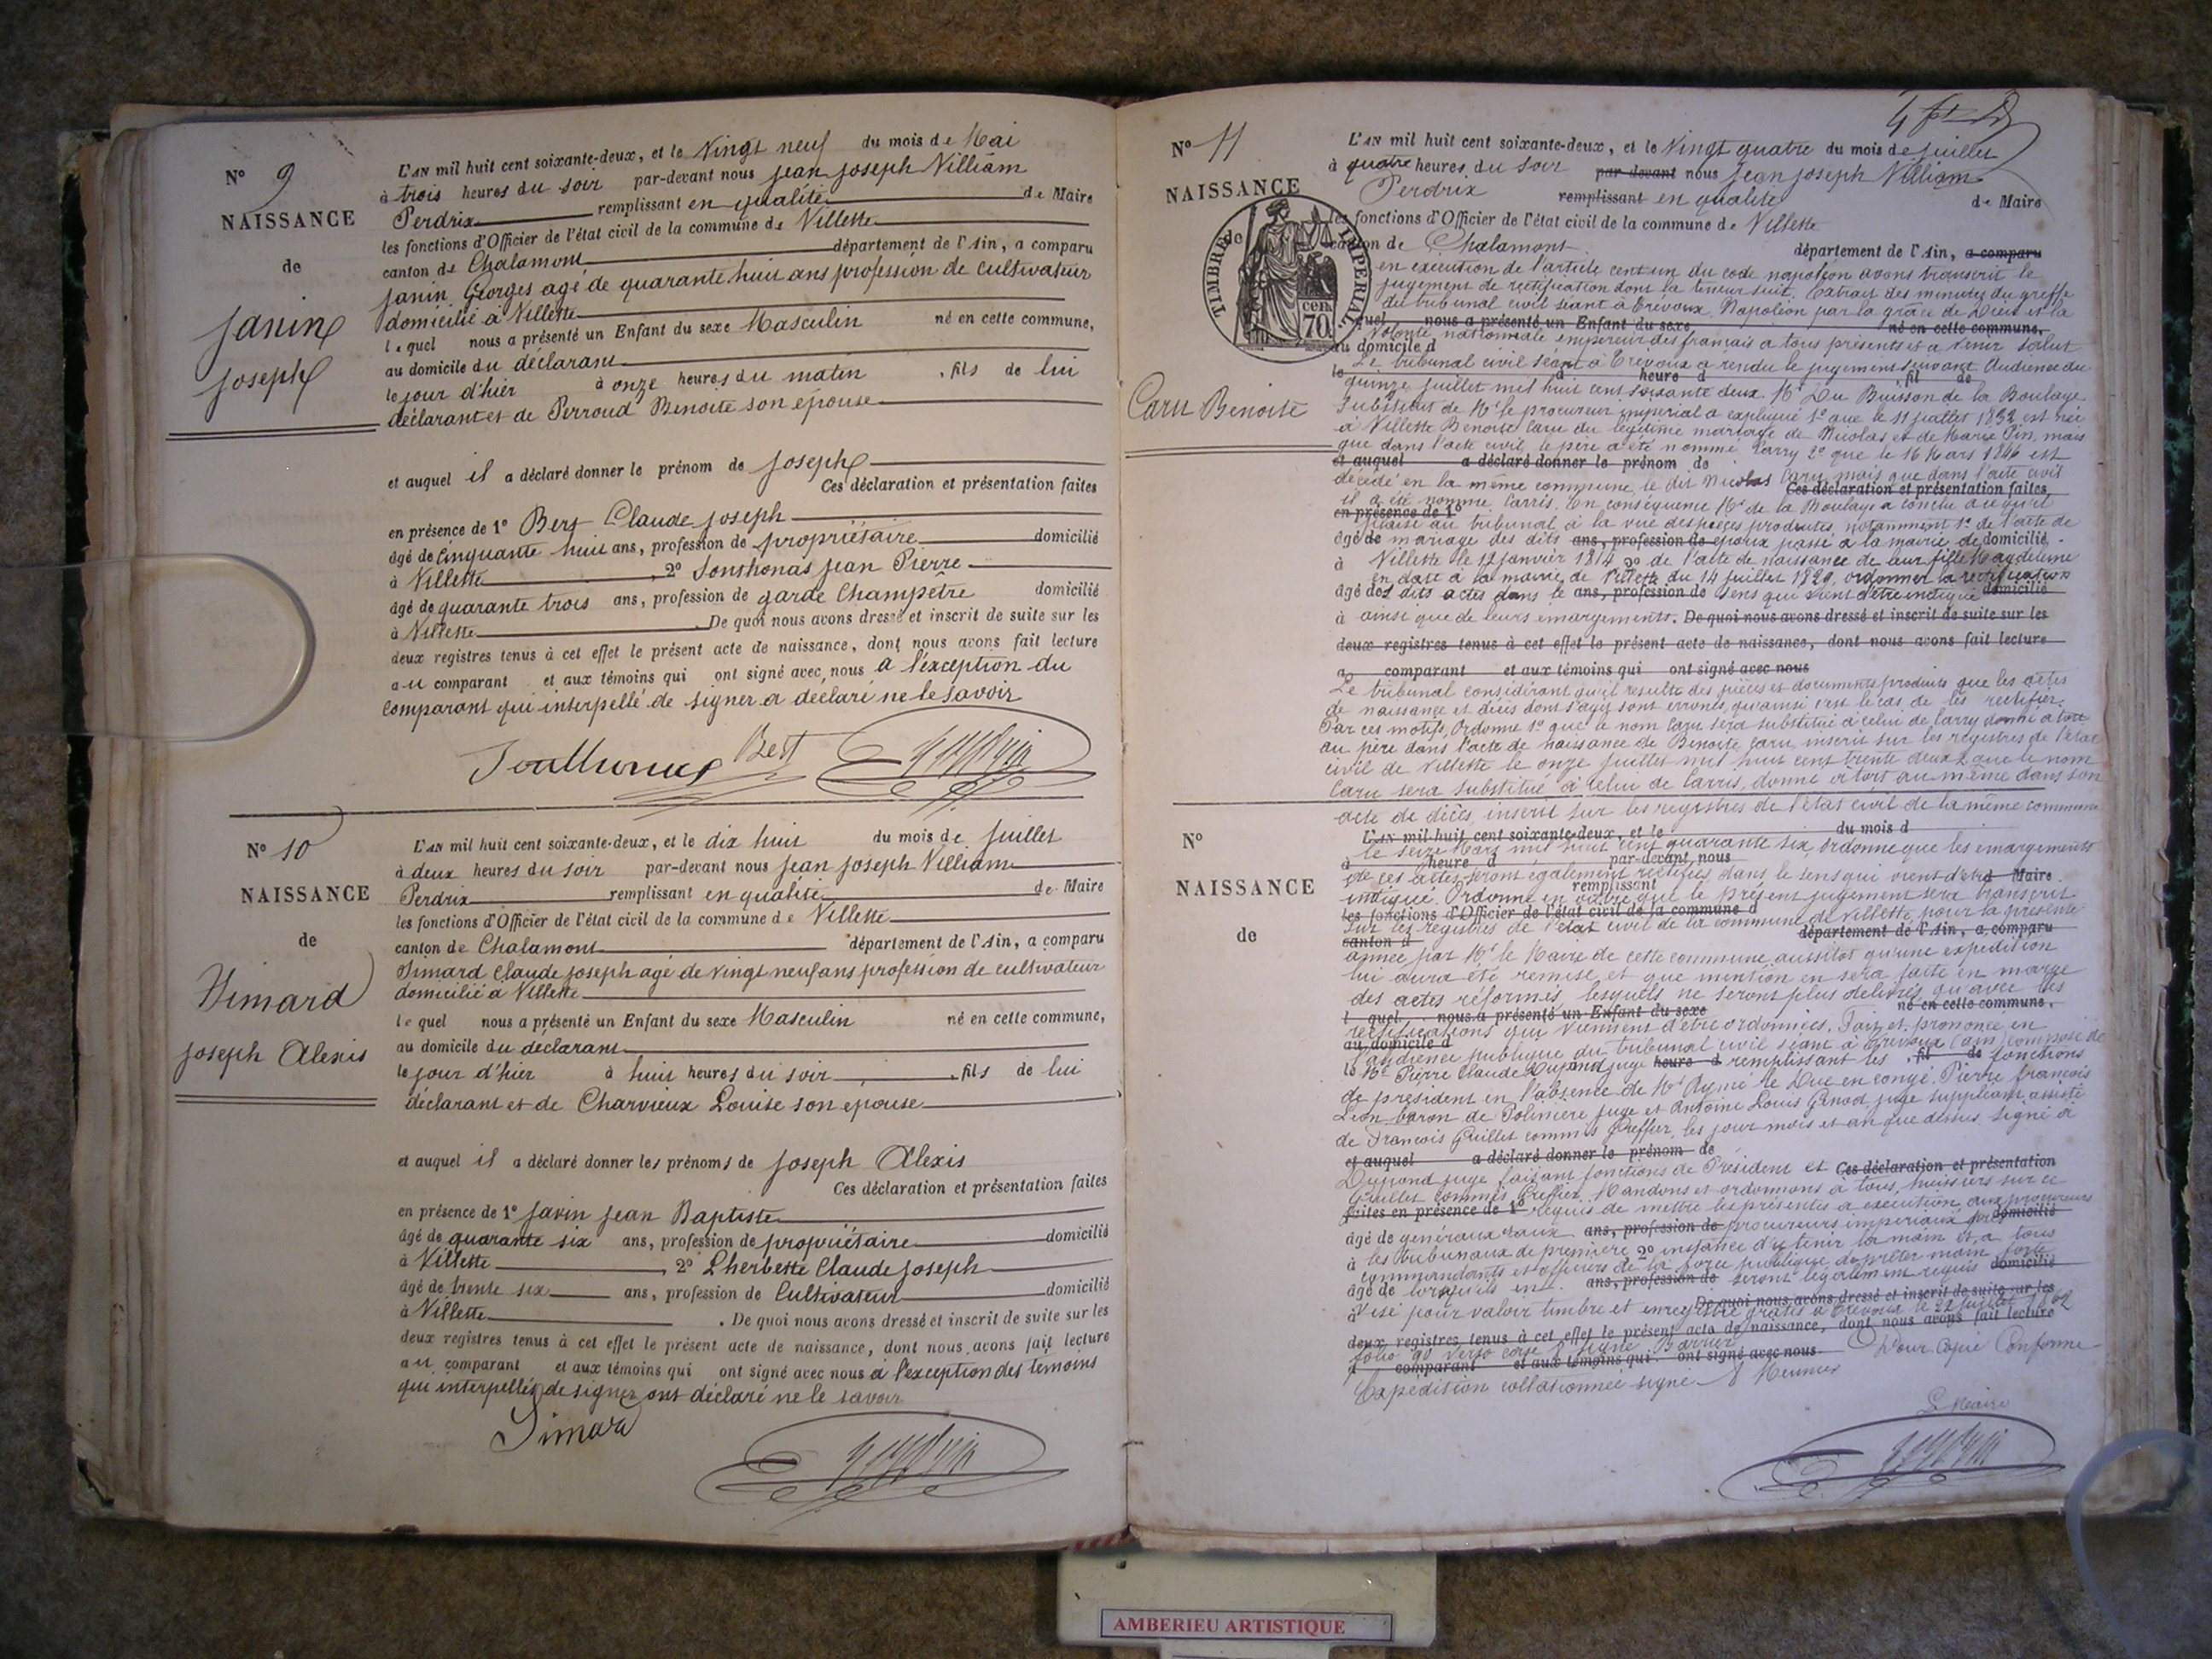 N° 9
NAISSANCE
de
Janin
Joseph
L'AN mil huit cent soixante-deux, et le Vingt neuf du mois de Mai
à trois heures du soir par-devant nous jean joseph Villiam
Perdrix remplissant en qualité de Maire
les fonctions d'Officier de l'état civil de la commune de Villette
canton de Chalamont département de l'Ain, a comparu
Janin Georges agé de quarante huit ans profession de cultivateur
domicilié à Villette
lequel nous a présenté un Enfant du sexe Masculin né en cette commune,
au domicile du déclarant
le jour d'hier à onze heures du matin, fils de lui
déclarant et de Perroud Benoite son épouse
et auquel il a déclaré donner le prénom de Joseph
Ces déclaration et présentation faites
en présence de 1° Bert Claude joseph
âgé de cinquante huit ans, profession de propriétaire domicilié
à Villette, 2° Jonthonas jean Pierre
âgé de quarante trois ans, profession de garde Champêtre domicilié
à Villette. De quoi nous avons dressé et inscrit de suite sur les
deux registres tenus à cet effet le présent acte de naissance, dont nous avons fait lecture
au comparant et aux témoins qui ont signé avec nous à l'exception du
comparant qui interpellé de signer a déclaré ne le savoir
Bert
N° 10
NAISSANCE
de
Simard
joseph Alexis
L'AN mil huit cent soixante-deux, et le dix huit du mois de juillet
à deux heures du soir par-devant nous jean joseph Villiam
Perdrix remplissant en qualité de Maire
les fonctions d'Officier de l'état civil de la commune de Villette
canton de Chalamont département de l'Ain, a comparu
Simard Claude joseph agé de vingt neuf ans profession de cultivateur
domicilié à Villette
lequel nous a présenté un Enfant du sexe Masculin né en cette commune,
au domicile du déclarant
le jour d'hier à huit heures du soir, fils de lui
déclarant et de Charvieux Louise son epouse
et auquel il a déclaré donner les prénoms de Joseph Alexis
Ces déclaration et présentation faites
en présence de 1° Janin jean Baptiste
âgé de quarante six ans, profession de propriétaire domicilié
à Villette, 2° Lherbette Claude joseph
âgé de trente six ans, profession de Cultivateur domicilié
à Villette. De quoi nous avons dressé et inscrit de suite sur les
deux registres tenus à cet effet le présent acte de naissance, dont nous avons fait lecture
au comparant et aux témoins qui ont signé avec nous à l'exception des témoins
qui interpellés de signer ont déclaré ne le savoir
Simard
N° 11
NAISSANCE
de
TIMBRE IMPERIAL
70 cen
Caru Benoite
L'AN mil huit cent soixante-deux, et le Vingt quatre du mois de juillet
à quatre heures du soir par-devant nous Jean joseph Villiam
Perdrix remplissant en qualité de Maire
les fonctions d'Officier de l'état civil de la commune de Villette
canton de Chalamont département de l'Ain, a comparu
en exécution de l'article cent un du code napoléon avons transcrit le
jugement de rectification dont la teneur suit. Extrait des minutes du greffe
du tribunal civil séant à Trévoux, Napoléon par la grâce de Dieu et la
quel nous a présenté un Enfant du sexe né en cette commune,
volonté nationale empereur des français a tous présents et à venir salut
au domicile d
Le tribunal civil séant à Trévoux a rendu le jugement suivant Audience du
le heure d fil de
quinze juillet mil huit cent soixante deux. Mr Du Buisson de la Boulaye
Substitut de Mr le procureur impérial a expliqué 1° que le 11 juillet 1832 est née
à Villette Benoite Caru du légitime mariage de Nicolas et de Marie Pin, mais
que dans l'acte civil, le père a été nommé Carry 2° que le 16 Mars 1846 est
et auquel a déclaré donner le prénom de
décédé en la même commune, le dit Nicolas Caru, mais que dans l'acte civil
Ces déclaration et présentation faites
il a été nommé Carris. En conséquence Mr de la Boulaye a conclu à ce qu'il
en présence de 1°
plaise au tribunal, à la vue des pièces produites, notamment 1° de l'acte de
âgé de mariage des dits ans, profession de époux passé à la mairie de domicilié
à Villette le 12 janvier 1814 2° de l'acte de naissance de leur fille Magdeleine
en date à la mairie de Villette du 14 juillet 1829, ordonner la rectification
âgé des dits actes dans le ans, profession de sens qui vient d'être indiqué domicilié
à ainsi que de leurs émargements. De quoi nous avons dressé et inscrit de suite sur les
deux registres tenus à cet effet le présent acte de naissance, dont nous avons fait lecture
a comparant et aux témoins qui ont signé avec nous
Le tribunal considérant qu'il résulte des pièces et documents produits que les actes
de naissance et décès dont s'agit sont erronés, qu'ainsi c'est le cas de les rectifier.
Par ces motifs, Ordonne 1° que le nom Caru sera substitué à celui de Carry donné à tort
au père dans l'acte de naissance de Benoite Caru, inscrit sur les registres de l'état
civil de Villette le onze juillet mil huit cent trente deux 2° que le nom
Caru sera substitué à celui de Carris, donné à tort au même dans son
acte de décès, inscrit sur les registres de l'état civil de la même commune
N°
NAISSANCE
de
L'AN mil huit cent soixante-deux, et le du mois d
le seize Mars mil huit cent quarante six, ordonne que les émargements
à heure d par-devant nous
de ces actes seront également rectifiés dans le sens qui vient d'être Maire
indiqué. Ordonne en outre que le présent jugement sera transcrit
remplissant
les fonctions d'Officier de l'état civil de la commune d
sur les registres de l'état civil de la commune de Villette pour la présente
canton d département de l'Ain, a comparu
année par Mr le Maire de cette commune aussitôt qu'une expédition
lui aura été remise, et que mention en sera faite en marge
des actes réformés, lesquels ne seront plus délivrés qu'avec les
l quel nous a présenté un Enfant du sexe né en cette commune,
rectifications qui viennent d'être ordonnées. Fait et prononcé en
au domicile d
l'audience publique du tribunal civil séant à Trévoux (ain) composé de
le Mr Pierre Claude Dupond juge heure d remplissant les fil de fonctions
de président en l'absence de Mr Aymé le Duc en congé, Pierre françois
Léon baron de Polinière juge et Antoine Louis Genod juge suppléant, assisté
de François Guillet commis Greffier, les jour mois et an que dessus. Signé à
et auquel a déclaré donner le prénom de
Dupond juge faisant fonctions de Président et Ces déclaration et présentation
Guillet commis Greffier. Mandons et ordonnons à tous huissiers sur ce
faites en présence de 1° requis de mettre les présentes à exécution, aux procureurs
âgé de généraux ans, profession de procureurs impériaux près domicilié
à les tribunaux de première 2° instance d'y tenir la main et à tous
commandants et officiers de la force publique de prêter main forte
âgé de lorsqu'ils en ans, profession de seront légalement requis domicilié
De quoi nous avons dressé et inscrit de suite sur les
Visé pour valoir timbre et enregistré gratis à Trévoux le 22 juillet 1862
deux registres tenus à cet effet le présent acte de naissance, dont nous avons fait lecture
folio 90 verso case 8 signé Barrier
a comparant et aux témoins qui ont signé avec nous
Pour copie Conforme
Expédition collationnée signé Meunier
Le Maire
AMBERIEU ARTISTIQUE